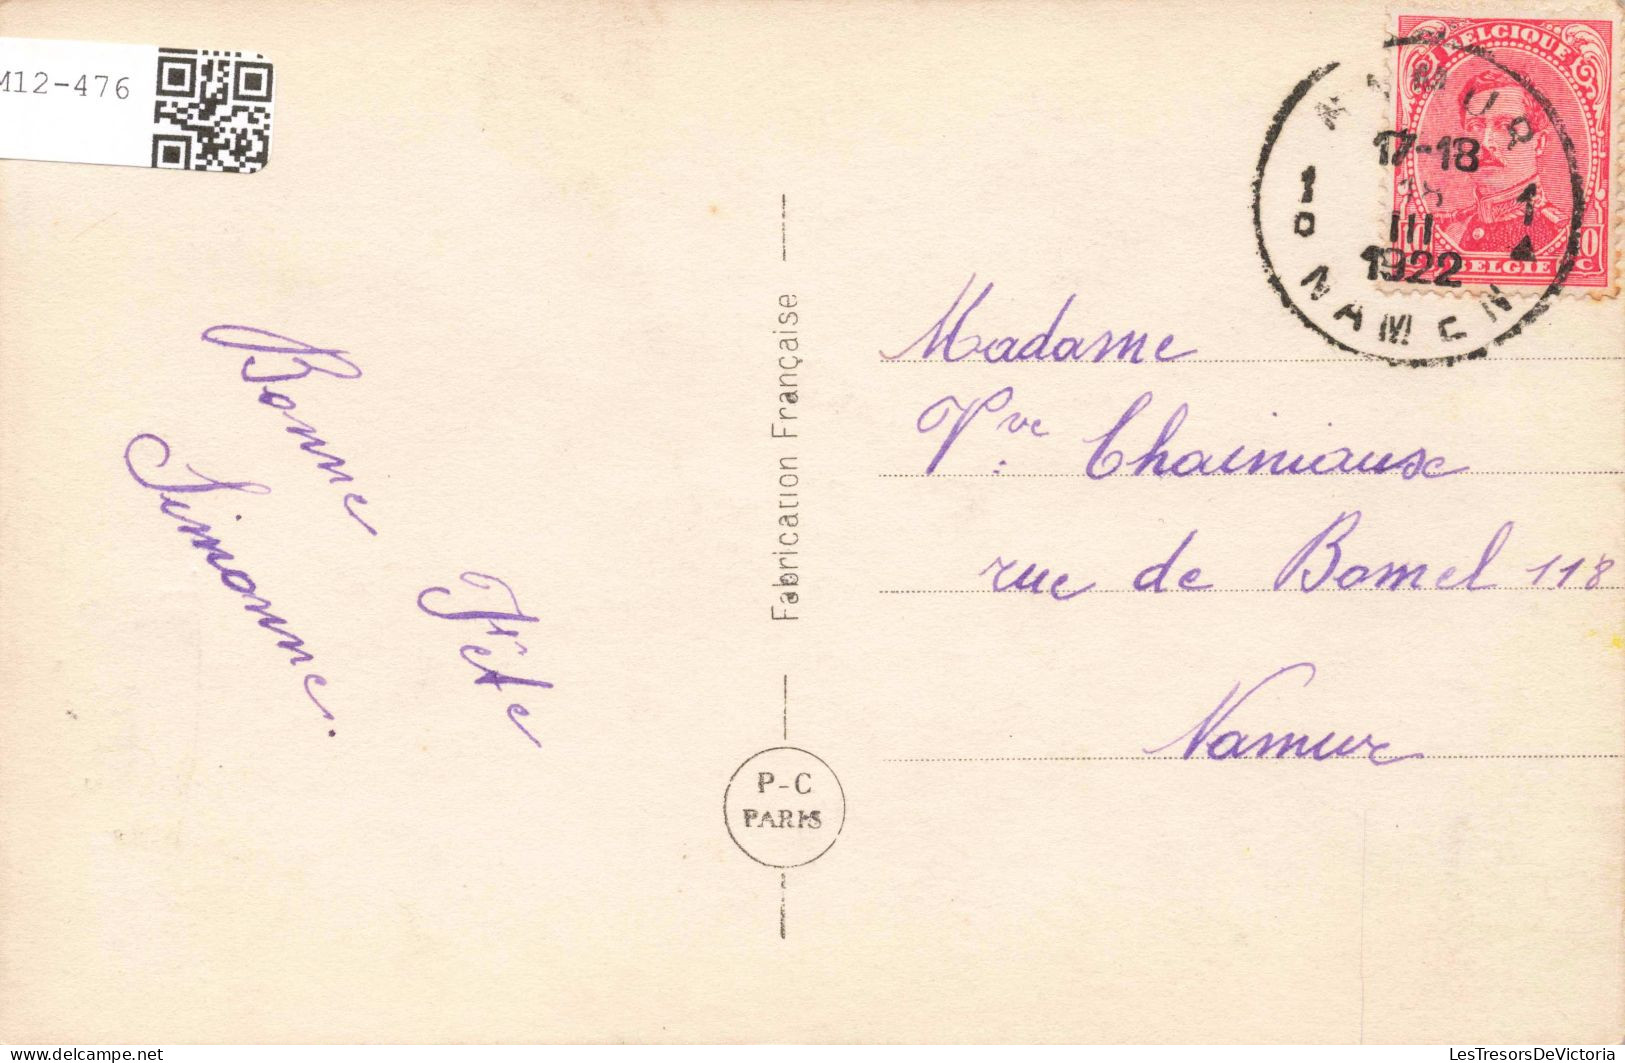 M12-476
BELGIQUE
NAMUR
17-18
III
1922
1 D
1
NAMEN
10 C
BELGIE
Bonne Fête
Simonne.
Fabrication Française
P-C
PARIS
Madame
Vve Chainiaux
rue de Bomel 118
Namur
LesTresorsDeVictoria